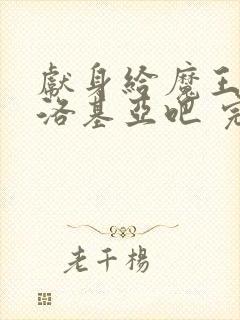 獻身給魔王
洛基亞吧
老千楊